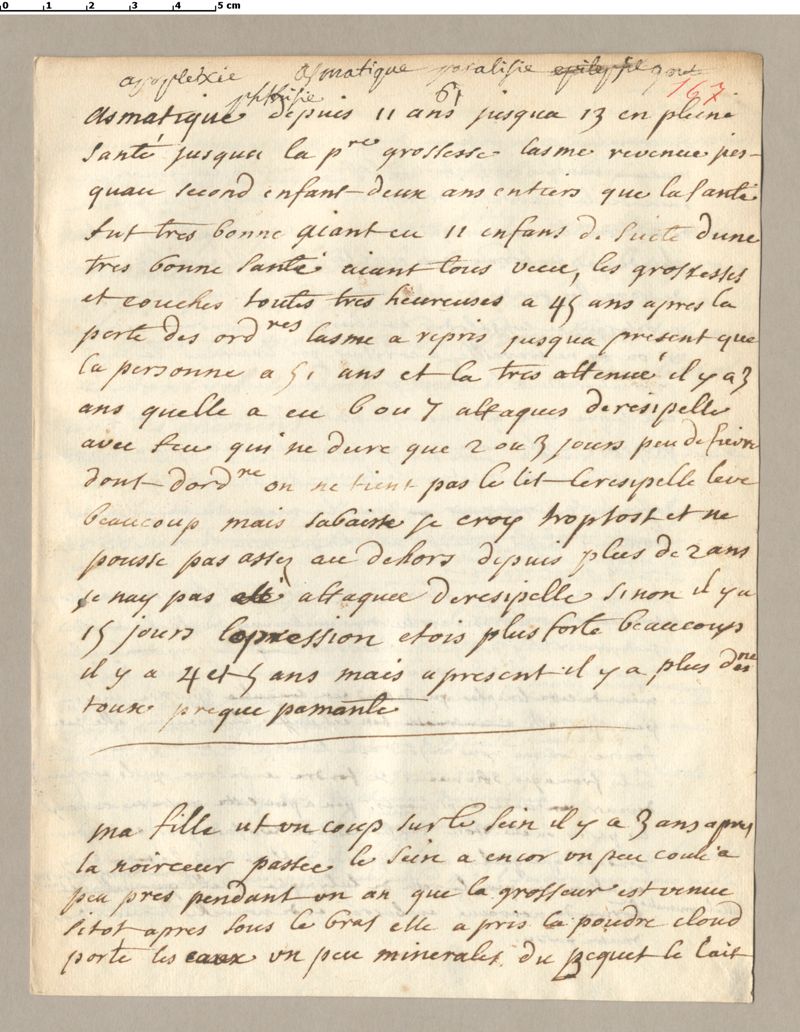 0 1 2 3 4 5 cm
apopletxie asmatique paralisie epilepsie gout
phtisie 61 167
asmatique depuis 11 ans jusqua 13 en pleine
santé jusqua la pre grossesse lasme revenue jus-
quau second enfant deux ans entiers que la santé
fut tres bonne aiant eu 11 enfans de suite dune
tres bonne santé aiant tous vecu, les grossesses
et couches toutes tres heureuses a 45 ans apres la
perte des ordres lasme a repris jusqua present que
la personne a 51 ans et la tres attenué il y a 3
ans quelle a eu 6 ou 7 attaques deresipelle
avec feu qui ne dure que 2 ou 3 jours peu de fievre
dont dordre on ne tient pas le lit leresipelle leve
beaucoup mais sabaisse je croy troptost et ne
pousse pas assez au dehors depuis plus de 2 ans
je nay pas été attaquée deresipelle sinon il y a
15 jours lopression etois plus forte beaucoup
il y a 4 et 5 ans mais apresent il y a plus dune
toux preque pamante
ma fille ut un coup sur le sein il y a 3 ans apres
la noirceur passee le sein a encor un peu coulé a
peu pres pendant un an que la grosseur est venue
sitot apres sous le bras elle a pris la poudre cloud
porte les eaux un peu minerales du pequet le lait